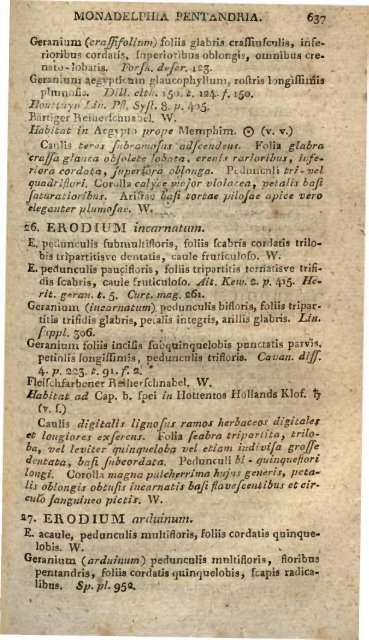 MONADELPHIA PENTANDRIA. 637
Geranium (crassifolium) foliis glabris crassiusculis, infe-
rioribus cordatis, superioribus oblongis, omnibus cre-
nato-lobatis. Forsk. descr. 123.
Geranium aegyptium glaucophyllum, rostris longissimis
plumosis. Dill. elth. 150. t. 124. f. 150.
Houttuyn Lin. Pfl. Syst. 8. p. 405.
Bärtiger Reiherschnabel. W.
Habitat in Aegypto prope Memphim. ⊙ (v. v.)
Caulis teres subramosus adscendens. Folia glabra
crassa glauca obsolete lobata, crenis rarioribus, infe-
riora cordata, superiora oblonga. Pedunculi tri- vel
quadriflori. Corolla calyce major violacea, petalis basi
saturatioribus. Aristae basi tortae pilosae apice vero
eleganter plumosae. W.
26. ERODIUM incarnatum.
E. pedunculis submultifloris, foliis scabris cordatis trilo-
bis tripartitisve dentatis, caule fruticuloso. W.
E. pedunculis paucifloris, foliis tripartitis ternatisve trifi-
dis scabris, caule fruticuloso. Ait. Kew. 2. p. 415. He-
rit. geran. t. 5. Curt. mag. 261.
Geranium (incarnatum) pedunculis bifloris, foliis tripar-
titis trifidis glabris, petalis integris, arillis glabris. Lin.
suppl. 306.
Geranium foliis incisis subquinquelobis punctatis parvis,
petiolis longissimis, pedunculis trifloris. Cavan. diss.
4. p. 223. t. 91. f. 2.
Fleischfarbener Reiherschnabel. W.
Habitat ad Cap. b. spei in Hottentos Hollands Klof. ♄
(v. s.)
Caulis digitalis lignosus ramos herbaceos digitales
et longiores exserens. Folia scabra tripartita, trilo-
ba, vel leviter quinqueloba vel etiam indivisa grosse
dentata, basi subcordata. Pedunculi bi - quinqueflori
longi. Corolla magna pulcherrima hujus generis, peta-
lis oblongis obtusis incarnatis basi flavescentibus et cir-
culo sanguineo pictis. W.
27. ERODIUM arduinum.
E. acaule, pedunculis multifloris, foliis cordatis quinque-
lobis. W.
Geranium (arduinum) pedunculis multifloris, floribus
pentandris, foliis cordatis quinquelobis, scapis radica-
libus. Sp. pl. 952.